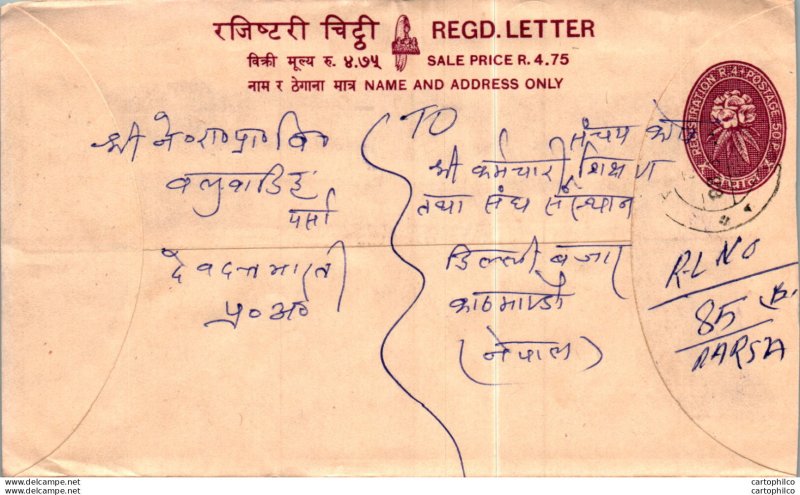 रजिष्टरी चिट्ठी REGD. LETTER
विक्री मूल्य रु. ४.७५ SALE PRICE R. 4.75
नाम र ठेगाना मात्र NAME AND ADDRESS ONLY
REGISTRATION R.4+POSTAGE 50 P.
श्री ने०रा०प्रा०वि०
पर्सा
देवदत्त भारती
प्र०अ०
TO
संचय कोष
श्री कर्मचारी शिक्षण
तथा संघ संस्थान
डिल्ली बजार
काठमाण्डौ
(नेपाल)
R-L NO
85
PARSA
www.delcampe.net
cartophilco
cartophilco